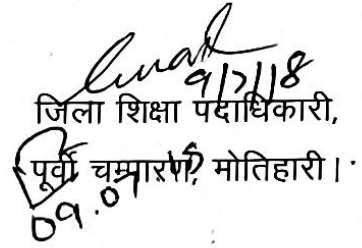 9/7/18
जिला शिक्षा पदाधिकारी,
पूर्वी चम्पारण, मोतिहारी।